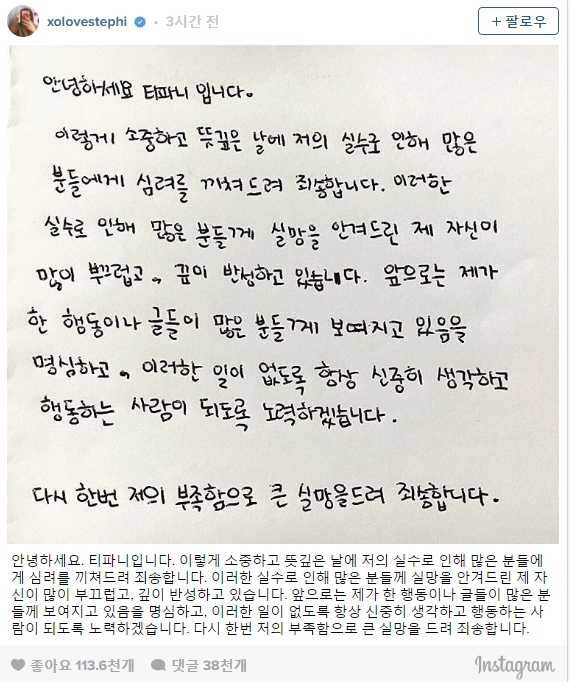 xolovestephi · 3시간 전
+ 팔로우
안녕하세요 티파니 입니다.
이렇게 소중하고 뜻깊은 날에 저의 실수로 인해 많은
분들에게 심려를 끼쳐드려 죄송합니다. 이러한
실수로 인해 많은 분들께 실망을 안겨드린 제 자신이
많이 부끄럽고, 깊이 반성하고 있습니다. 앞으로는 제가
한 행동이나 글들이 많은 분들께 보여지고 있음을
명심하고, 이러한 일이 없도록 항상 신중히 생각하고
행동하는 사람이 되도록 노력하겠습니다.
다시 한번 저의 부족함으로 큰 실망을드려 죄송합니다.
안녕하세요. 티파니입니다. 이렇게 소중하고 뜻깊은 날에 저의 실수로 인해 많은 분들에
게 심려를 끼쳐드려 죄송합니다. 이러한 실수로 인해 많은 분들께 실망을 안겨드린 제 자
신이 많이 부끄럽고, 깊이 반성하고 있습니다. 앞으로는 제가 한 행동이나 글들이 많은 분
들께 보여지고 있음을 명심하고, 이러한 일이 없도록 항상 신중히 생각하고 행동하는 사
람이 되도록 노력하겠습니다. 다시 한번 저의 부족함으로 큰 실망을 드려 죄송합니다.
좋아요 113.6천개 댓글 38천개
Instagram